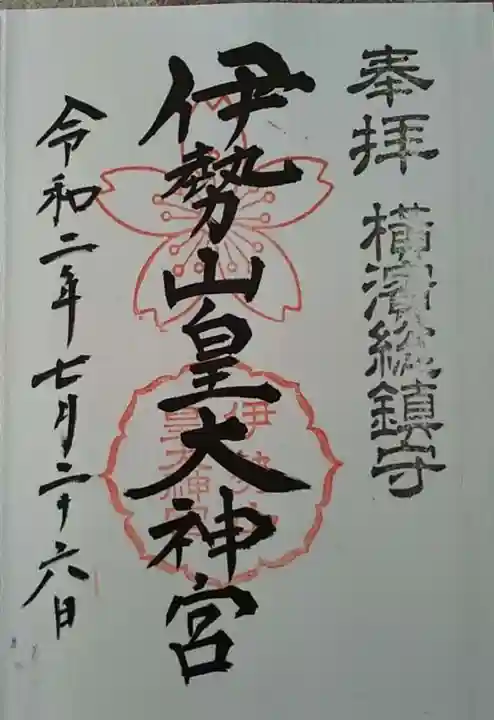 奉拝 横濱総鎮守
伊勢山皇大神宮
伊勢山
皇大神宮
令和二年七月二十六日